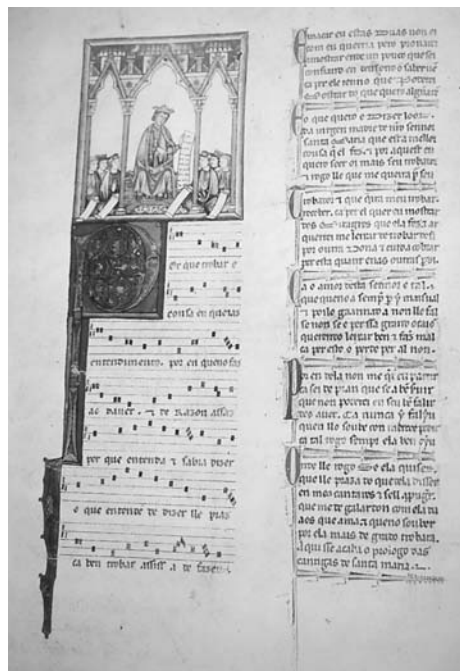 Or que trobar e
cousa en que ias
entendimento. por en queno faz
ao dauer. ⁊ de razon assaz
per que entenda ⁊ sabia dizer
o que entende de dizer lle praz
ca ben trobar assi s a de fazer.
E macar eu estas duas non ei
com eu querria pero prouarei
a mostrar ende un pouco que sei
confiand en deus ond o saber uẽ
ca per ele tenno que poderei
mostrar do que quero algũa rẽ
E o que quero e dizer loor.
da uirgen madre de nr̃o sennor
santa maria que est a mellor
cousa q̃ el fez. ⁊ por aquest eu
quero seer oi mais seu trobador
⁊ rogo lle que me queira p̃ seu
Trobador ⁊ que queira meu trobar
receber. ca per el quer eu mostrar
dos miragres que ela fez ar
querrei me leixar de trobar desi
por outra dona ⁊ cuid a cobrar
per esta quant enas outras p̃di.
Ca o amor desta sennor e tal.
que queno a sempr p̃ y mais ual
⁊ poilo gaannad a non lle fal
se non se e per ssa grand ocaiõ
querendo leixar ben ⁊ fazer mal
ca per esto o perde ⁊ per al non.
Por en dela non me q̃r eu partir
ca sei de pran que se a bẽ seruir
que non poderei en seu bẽ falir
de o auer. ca nunca y faliu
quen llo soube con mercee pedir
ca tal rogo sempr ela ben oyu
Onde lle rogo se ela quiser.
que lle praza do que dela disser
en meus cantares ⁊ se ll aprouguer.
que me de galardon com ela da
aos que ama ⁊ queno souber
por ela mais de grado trobara.
Aqui sse acaba o prologo das
cantigas de santa maria.